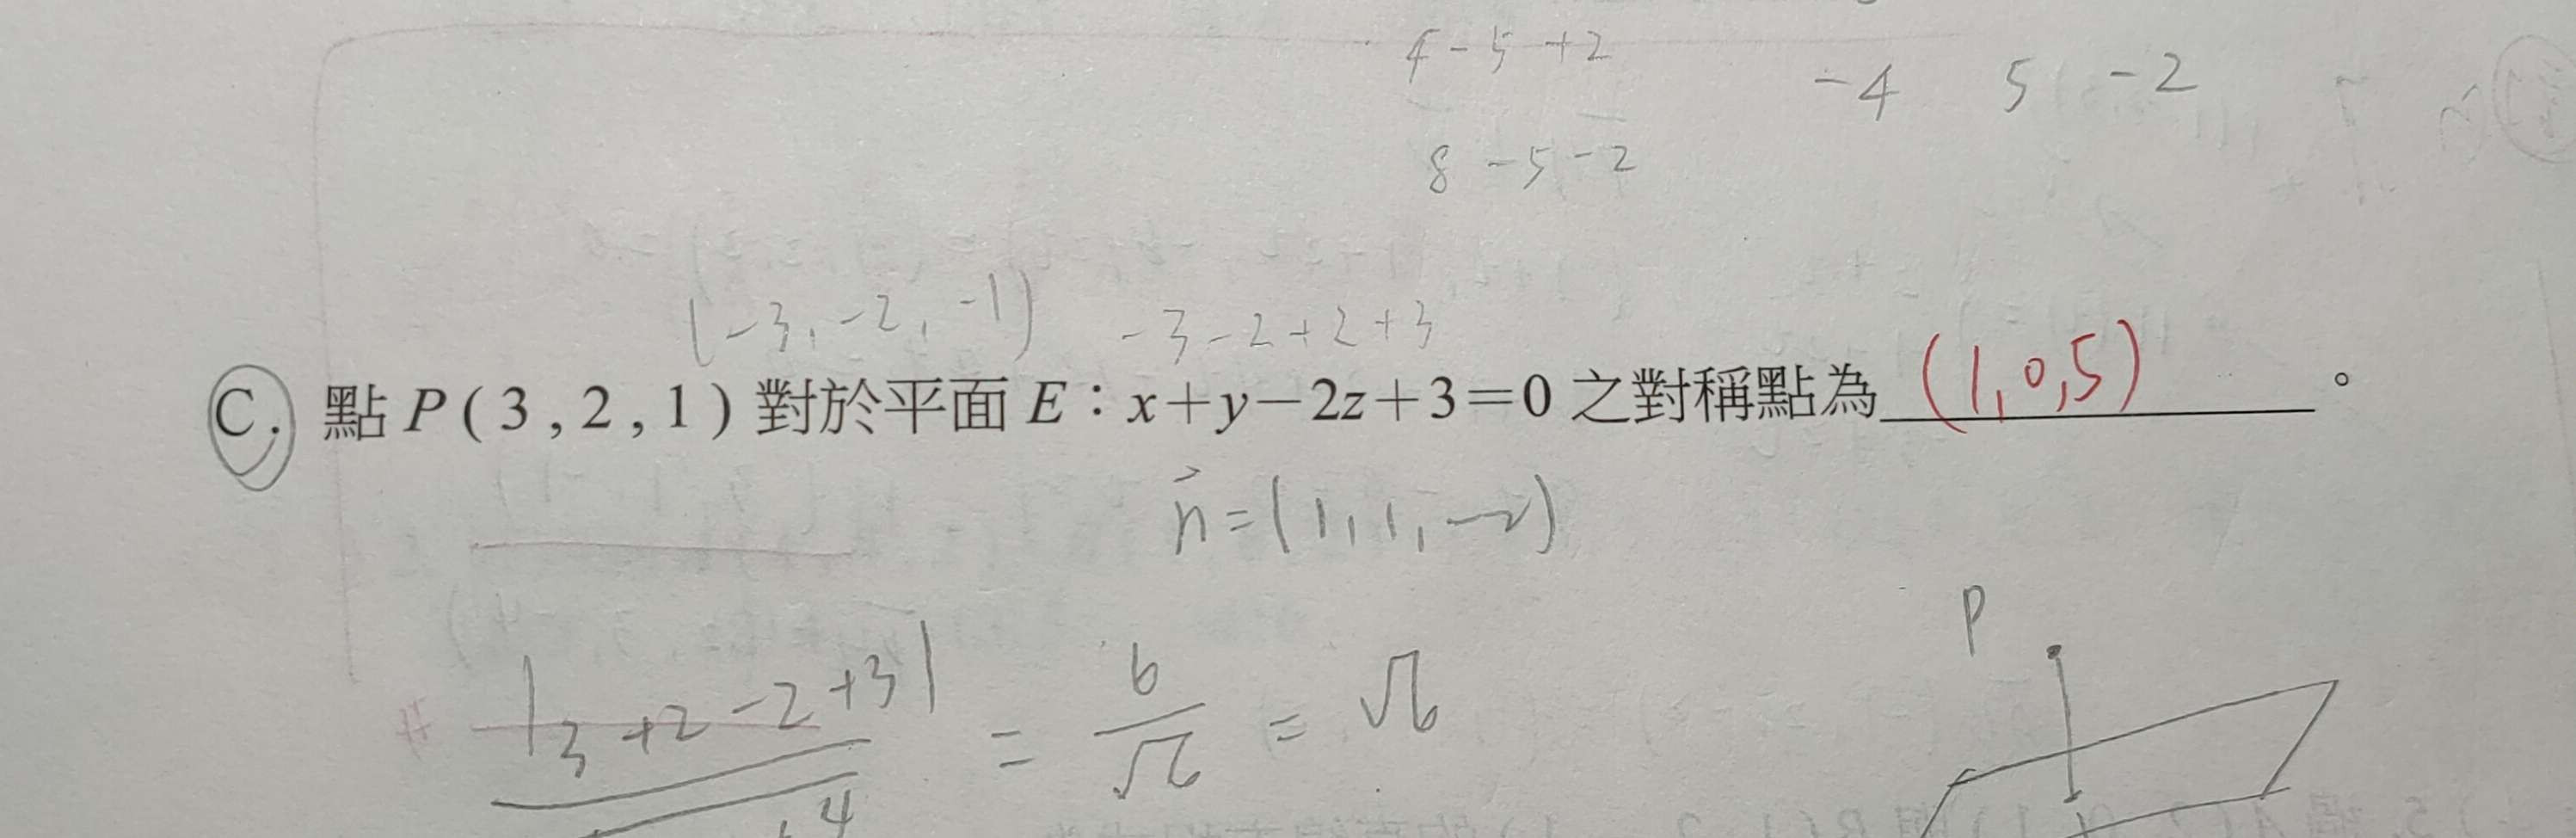 4 - 5 + 2
-4 5 -2
8 - 5 - 2
(-3, -2, -1) -3 - 2 + 2 + 3
C. 點 P ( 3 , 2 , 1 ) 對於平面 E：x＋y－2z＋3＝0 之對稱點為 (1, 0, 5) 。
n⃗ = (1, 1, -2)
P
|3 + 2 - 2 + 3| = 6/√6 = √6
4